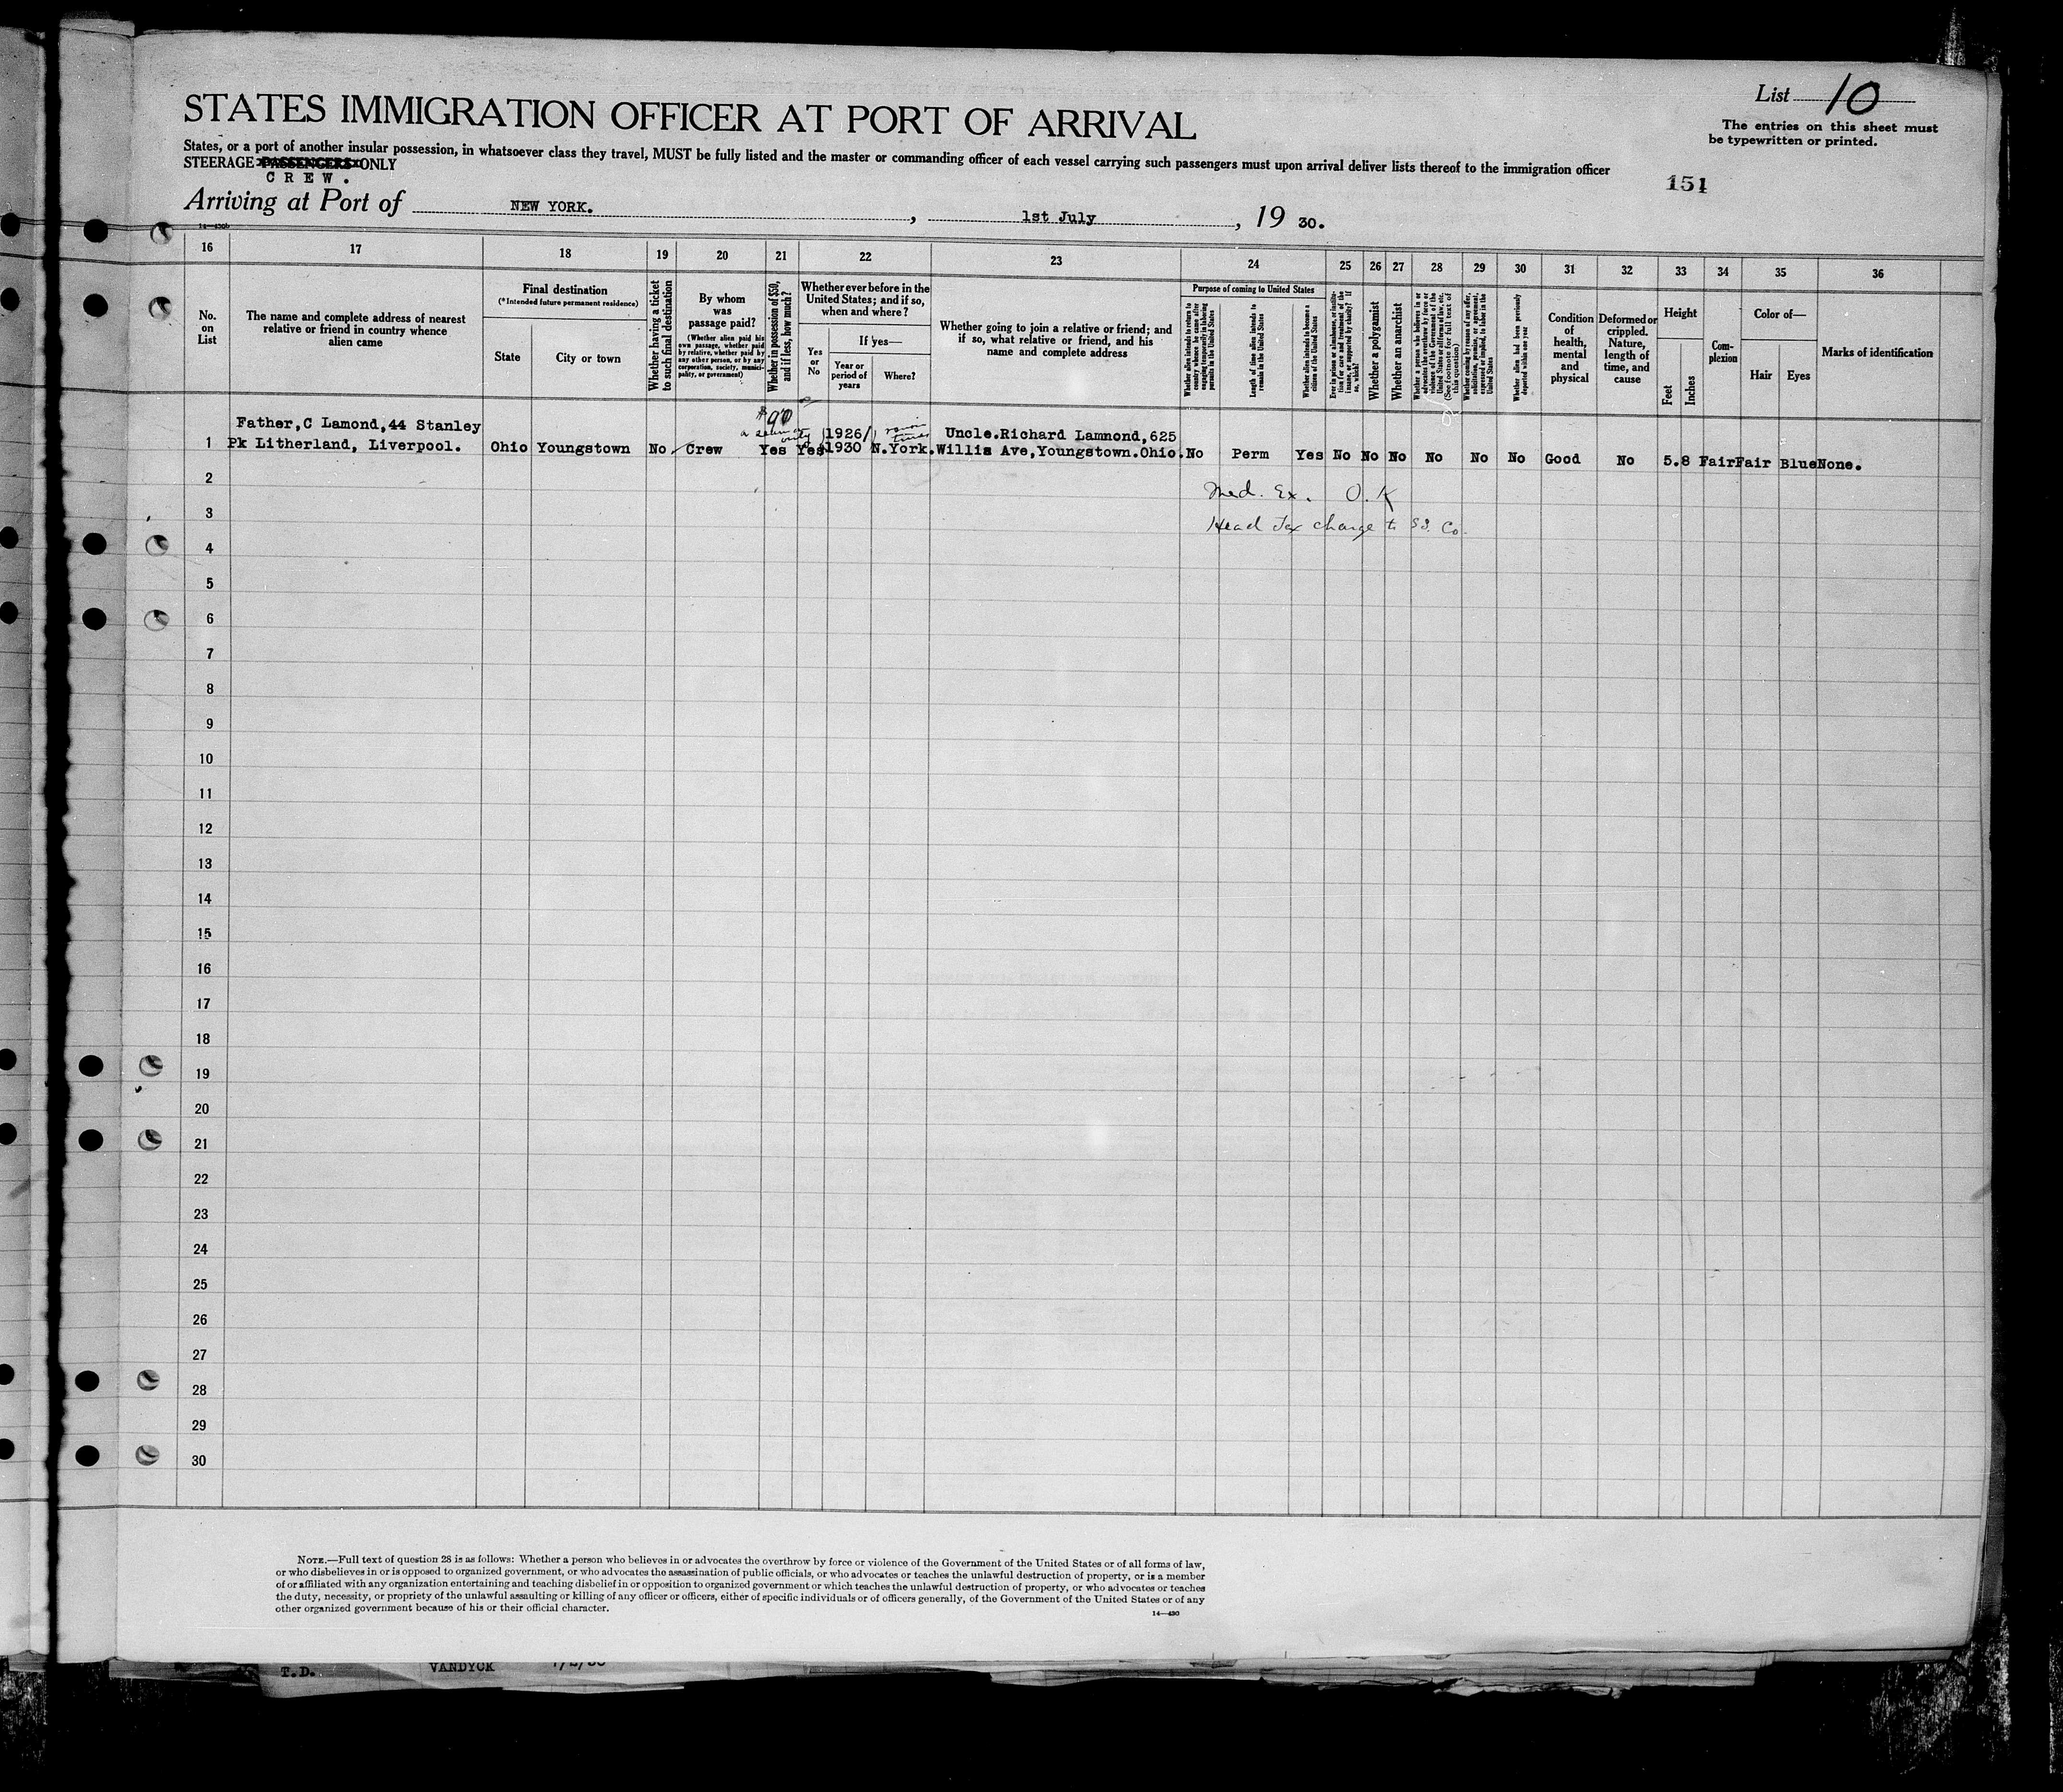 List 10
The entries on this sheet must
be typewritten or printed.
STATES IMMIGRATION OFFICER AT PORT OF ARRIVAL
States, or a port of another insular possession, in whatsoever class they travel, MUST be fully listed and the master or commanding officer of each vessel carrying such passengers must upon arrival deliver lists thereof to the immigration officer
STEERAGE PASSENGERS ONLY
CREW.
151
Arriving at Port of NEW YORK. , 1st July , 19 30.
16 17 18 19 20 21 22 23 24 25 26 27 28 29 30 31 32 33 34 35 36
No.
on
List
The name and complete address of nearest
relative or friend in country whence
alien came
Final destination
(*Intended future permanent residence)
State
City or town
Whether having a ticket
to such final destination
By whom
was
passage paid?
(Whether alien paid his
own passage, whether paid
by relative, whether paid by
any other person, or by any
corporation, society, munici-
pality, or government)
Whether in possession of $50,
and if less, how much?
Whether ever before in the
United States; and if so,
when and where?
Yes
or
No
If yes—
Year or
period of
years
Where?
Whether going to join a relative or friend; and
if so, what relative or friend, and his
name and complete address
Purpose of coming to United States
Whether alien intends to return to
country whence he came after
engaging temporarily in laboring
pursuits in the United States
Length of time alien intends to
remain in the United States
Whether alien intends to become a
citizen of the United States
Ever in prison or almshouse, or institu-
tion for care and treatment of the
insane, or supported by charity? If
so, which?
Whether a polygamist
Whether an anarchist
Whether a person who believes in or
advocates the overthrow by force or
violence of the Government of the
United States or all forms of law, etc.
(See footnote for full text of
this question)
Whether coming by reason of any offer,
solicitation, promise, or agreement,
expressed or implied, to labor in the
United States
Whether alien had been previously
deported within one year
Condition
of
health,
mental
and
physical
Deformed or
crippled.
Nature,
length of
time, and
cause
Height
Feet
Inches
Com-
plexion
Color of—
Hair
Eyes
Marks of identification
$90
Father,C Lamond,44 Stanley
1 Pk Litherland, Liverpool. Ohio Youngstown No Crew Yes Yes 1926/ 1930 N.York.
Uncle.Richard Lamnond,625
Willis Ave,Youngstown.Ohio. No Perm Yes No No No No No No Good No 5.8 Fair Fair Blue None.
Med. Ex. O.K
Head Tax charge to SS. Co.
2
3
4
5
6
7
8
9
10
11
12
13
14
15
16
17
18
19
20
21
22
23
24
25
26
27
28
29
30
NOTE.—Full text of question 28 is as follows: Whether a person who believes in or advocates the overthrow by force or violence of the Government of the United States or of all forms of law,
or who disbelieves in or is opposed to organized government, or who advocates the assassination of public officials, or who advocates or teaches the unlawful destruction of property, or is a member
of or affiliated with any organization entertaining and teaching disbelief in or opposition to organized government or which teaches the unlawful destruction of property, or who advocates or teaches
the duty, necessity, or propriety of the unlawful assaulting or killing of any officer or officers, either of specific individuals or of officers generally, of the Government of the United States or of any
other organized government because of his or their official character.
14—430
T.D. VANDYCK